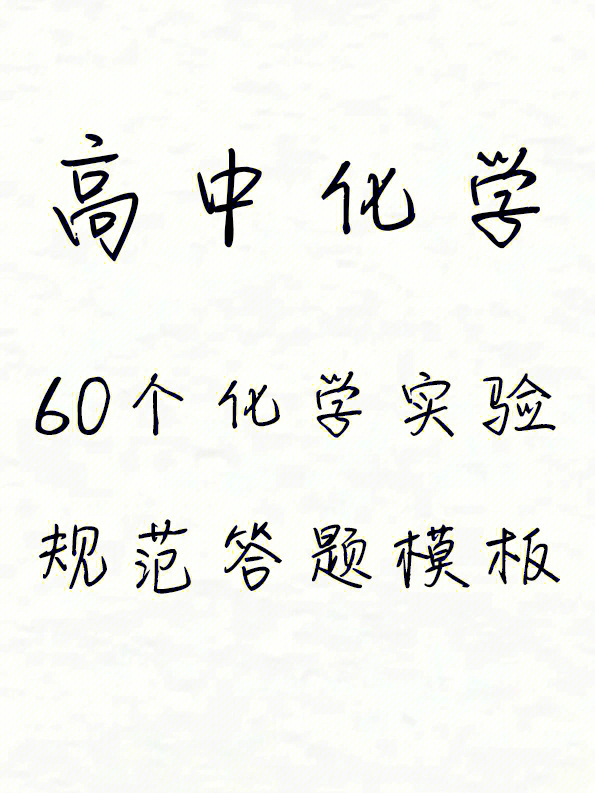 高中化学
60个化学实验
规范答题模板